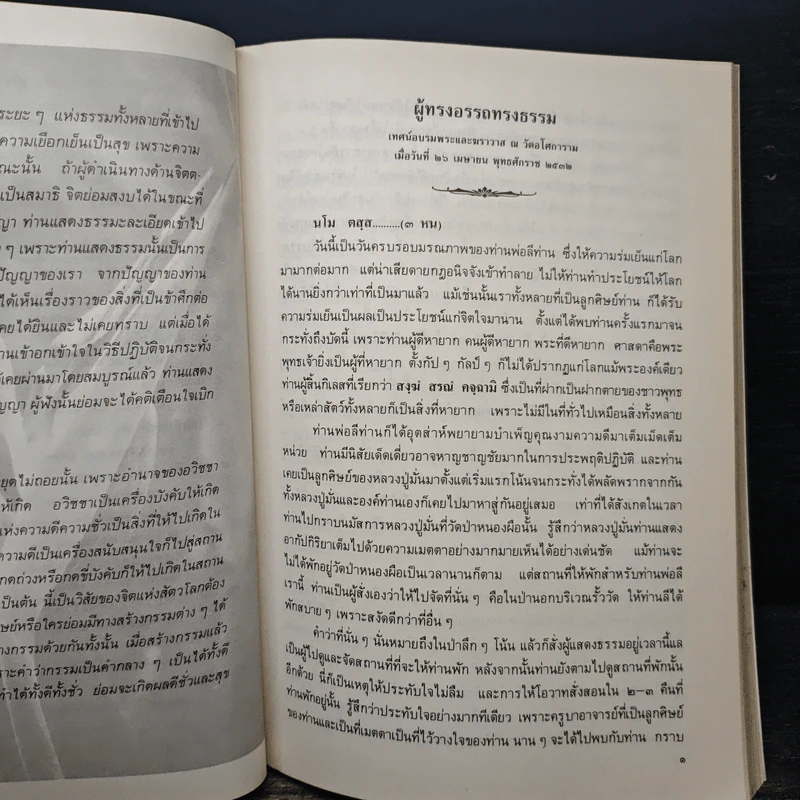 ระยะ ๆ แห่งธรรมทั้งหลายที่เข้าไป
ความเยือกเย็นเป็นสุข เพราะความ
ขณะนั้น ถ้าผู้ดำเนินทางด้านจิตต-
เป็นสมาธิ จิตย่อมสงบได้ในขณะที่
ญา ท่านแสดงธรรมะละเอียดเข้าไป
ๆ เพราะท่านแสดงธรรมนั้นเป็นการ
ปัญญาของเรา จากปัญญาของท่าน
ได้เห็นเรื่องราวของสิ่งที่เป็นข้าศึกต่อ
เคยได้ยินและไม่เคยทราบ แต่เมื่อได้
านเข้าอกเข้าใจในวิธีปฏิบัติจนกระทั่ง
ด้เคยผ่านมาโดยสมบูรณ์แล้ว ท่านแสดง
ญญา ผู้ฟังนั้นย่อมจะได้คติเตือนใจเบิก
ยุดไม่ถอยนั้น เพราะอำนาจของอวิชชา
ห้เกิด อวิชชาเป็นเครื่องบังคับให้เกิด
แห่งความดีความชั่วเป็นสิ่งที่ให้ไปเกิดใน
ความดีเป็นเครื่องสนับสนุนใจก็ไปสู่สถาน
กดถ่วงหรือกดขี่บังคับก็ให้ไปเกิดในสถาน
เป็นต้น นี้เป็นวิสัยของจิตแห่งสัตว์โลกต้อง
นุษย์หรือใครย่อมมีทางสร้างกรรมต่าง ๆ ได้
างกรรมด้วยกันทั้งนั้น เมื่อสร้างกรรมแล้ว
ราะคำว่ากรรมเป็นคำกลาง ๆ เป็นได้ทั้งดี
ทำได้ทั้งดีทั้งชั่ว ย่อมจะเกิดผลดีชั่วและสุข
ผู้ทรงอรรถทรงธรรม
เทศน์อบรมพระและฆราวาส ณ วัดอโศการาม
เมื่อวันที่ ๒๖ เมษายน พุทธศักราช ๒๕๓๒
นโม ตสฺส..........(๓ หน)
วันนี้เป็นวันครบรอบมรณภาพของท่านพ่อลีท่าน ซึ่งให้ความร่มเย็นแก่โลก
มามากต่อมาก แต่น่าเสียดายกฎอนิจจังเข้าทำลาย ไม่ให้ท่านทำประโยชน์ให้โลก
ได้นานยิ่งกว่าเท่าที่เป็นมาแล้ว แม้เช่นนั้นเราทั้งหลายที่เป็นลูกศิษย์ท่าน ก็ได้รับ
ความร่มเย็นเป็นผลเป็นประโยชน์แก่จิตใจมานาน ตั้งแต่ได้พบท่านครั้งแรกมาจน
กระทั่งถึงบัดนี้ เพราะท่านผู้ดีหายาก คนผู้ดีหายาก พระที่ดีหายาก ศาสดาคือพระ
พุทธเจ้ายิ่งเป็นผู้ที่หายาก ตั้งกัป ๆ กัลป์ ๆ ก็ไม่ได้ปรากฏแก่โลกแม้พระองค์เดียว
ท่านผู้สิ้นกิเลสที่เรียกว่า สงฺฆํ สรณํ คจฺฉามิ ซึ่งเป็นที่ฝากเป็นฝากตายของชาวพุทธ
หรือเหล่าสัตว์ทั้งหลายก็เป็นสิ่งที่หายาก เพราะไม่มีในที่ทั่วไปเหมือนสิ่งทั้งหลาย
ท่านพ่อลีท่านก็ได้อุตส่าห์พยายามบำเพ็ญคุณงามความดีมาเต็มเม็ดเต็ม
หน่วย ท่านมีนิสัยเด็ดเดี่ยวอาจหาญชาญชัยมากในการประพฤติปฏิบัติ และท่าน
เคยเป็นลูกศิษย์ของหลวงปู่มั่นมาตั้งแต่เริ่มแรกโน้นจนกระทั่งได้พลัดพรากจากกัน
ทั้งหลวงปู่มั่นและองค์ท่านเองก็เคยไปมาหาสู่กันอยู่เสมอ เท่าที่ได้สังเกตในเวลา
ท่านไปกราบนมัสการหลวงปู่มั่นที่วัดป่าหนองผือนั้น รู้สึกว่าหลวงปู่มั่นท่านแสดง
อากัปกิริยาเต็มไปด้วยความเมตตาอย่างมากมายเห็นได้อย่างเด่นชัด แม้ท่านจะ
ไม่ได้พักอยู่วัดป่าหนองผือเป็นเวลานานก็ตาม แต่สถานที่ให้พักสำหรับท่านพ่อลี
เรานี้ ท่านเป็นผู้สั่งเองว่าให้ไปจัดที่นั่น ๆ คือในป่านอกบริเวณรั้ววัด ให้ท่านลีได้
พักสบาย ๆ เพราะสงัดดีกว่าที่อื่น ๆ
คำว่าที่นั่น ๆ นั่นหมายถึงในป่าลึก ๆ โน้น แล้วก็สั่งผู้แสดงธรรมอยู่เวลานี้แล
เป็นผู้ไปดูและจัดสถานที่ที่จะให้ท่านพัก หลังจากนั้นท่านยังตามไปดูสถานที่พักนั้น
อีกด้วย นี่ก็เป็นเหตุให้ประทับใจไม่ลืม และการให้โอวาทสั่งสอนใน ๒–๓ คืนที่
ท่านพักอยู่นั้น รู้สึกว่าประทับใจอย่างมากทีเดียว เพราะครูบาอาจารย์ที่เป็นลูกศิษย์
ของท่านและเป็นที่เมตตาเป็นที่ไว้วางใจของท่าน นาน ๆ จะได้ไปพบกับท่าน กราบ
๑